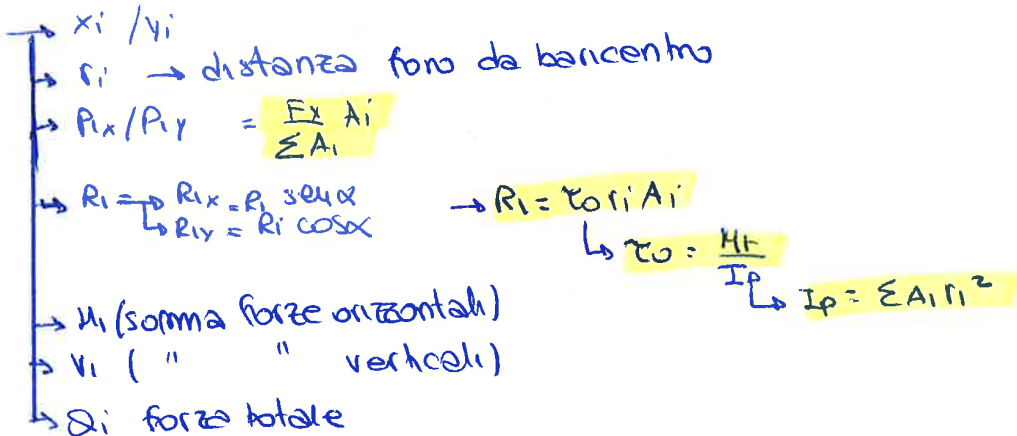 → xi / yi
→ ri → distanza foro da baricentro
→ Pix / Piy = Fx/ΣAi Ai
→ Ri = → Rix = Ri senα → Ri = τo ri Ai
↳ Riy = Ri cosα
↳ τo = Mt/Ip
↳ Ip = ΣAi ri²
→ Hi (somma forze orizzontali)
→ Vi ( " " verticali)
→ Qi forza totale